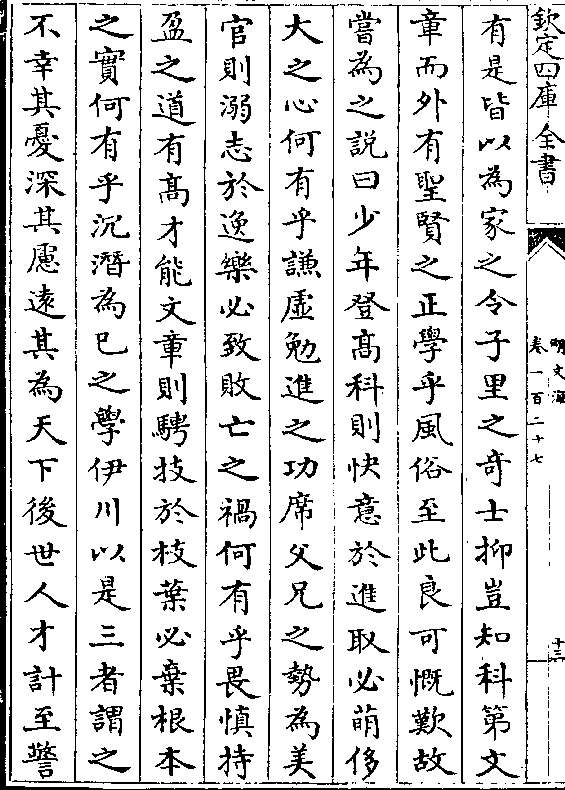 欽定四庫全書
明文海
卷一百二十七
十三
有是皆以為家之令子里之奇士抑豈知科第文
章而外有聖賢之正學乎風俗至此良可慨歎故
嘗為之說曰少年登髙科則快意於進取必萌侈
大之心何有乎謙虛勉進之功席父兄之勢為美
官則溺志於逸樂必致敗亡之禍何有乎畏慎持
盈之道有髙才能文章則騁技於枝葉必棄根本
之實何有乎沉潛為已之學伊川以是三者謂之
不幸其憂深其慮逺其為天下後世人才計至警